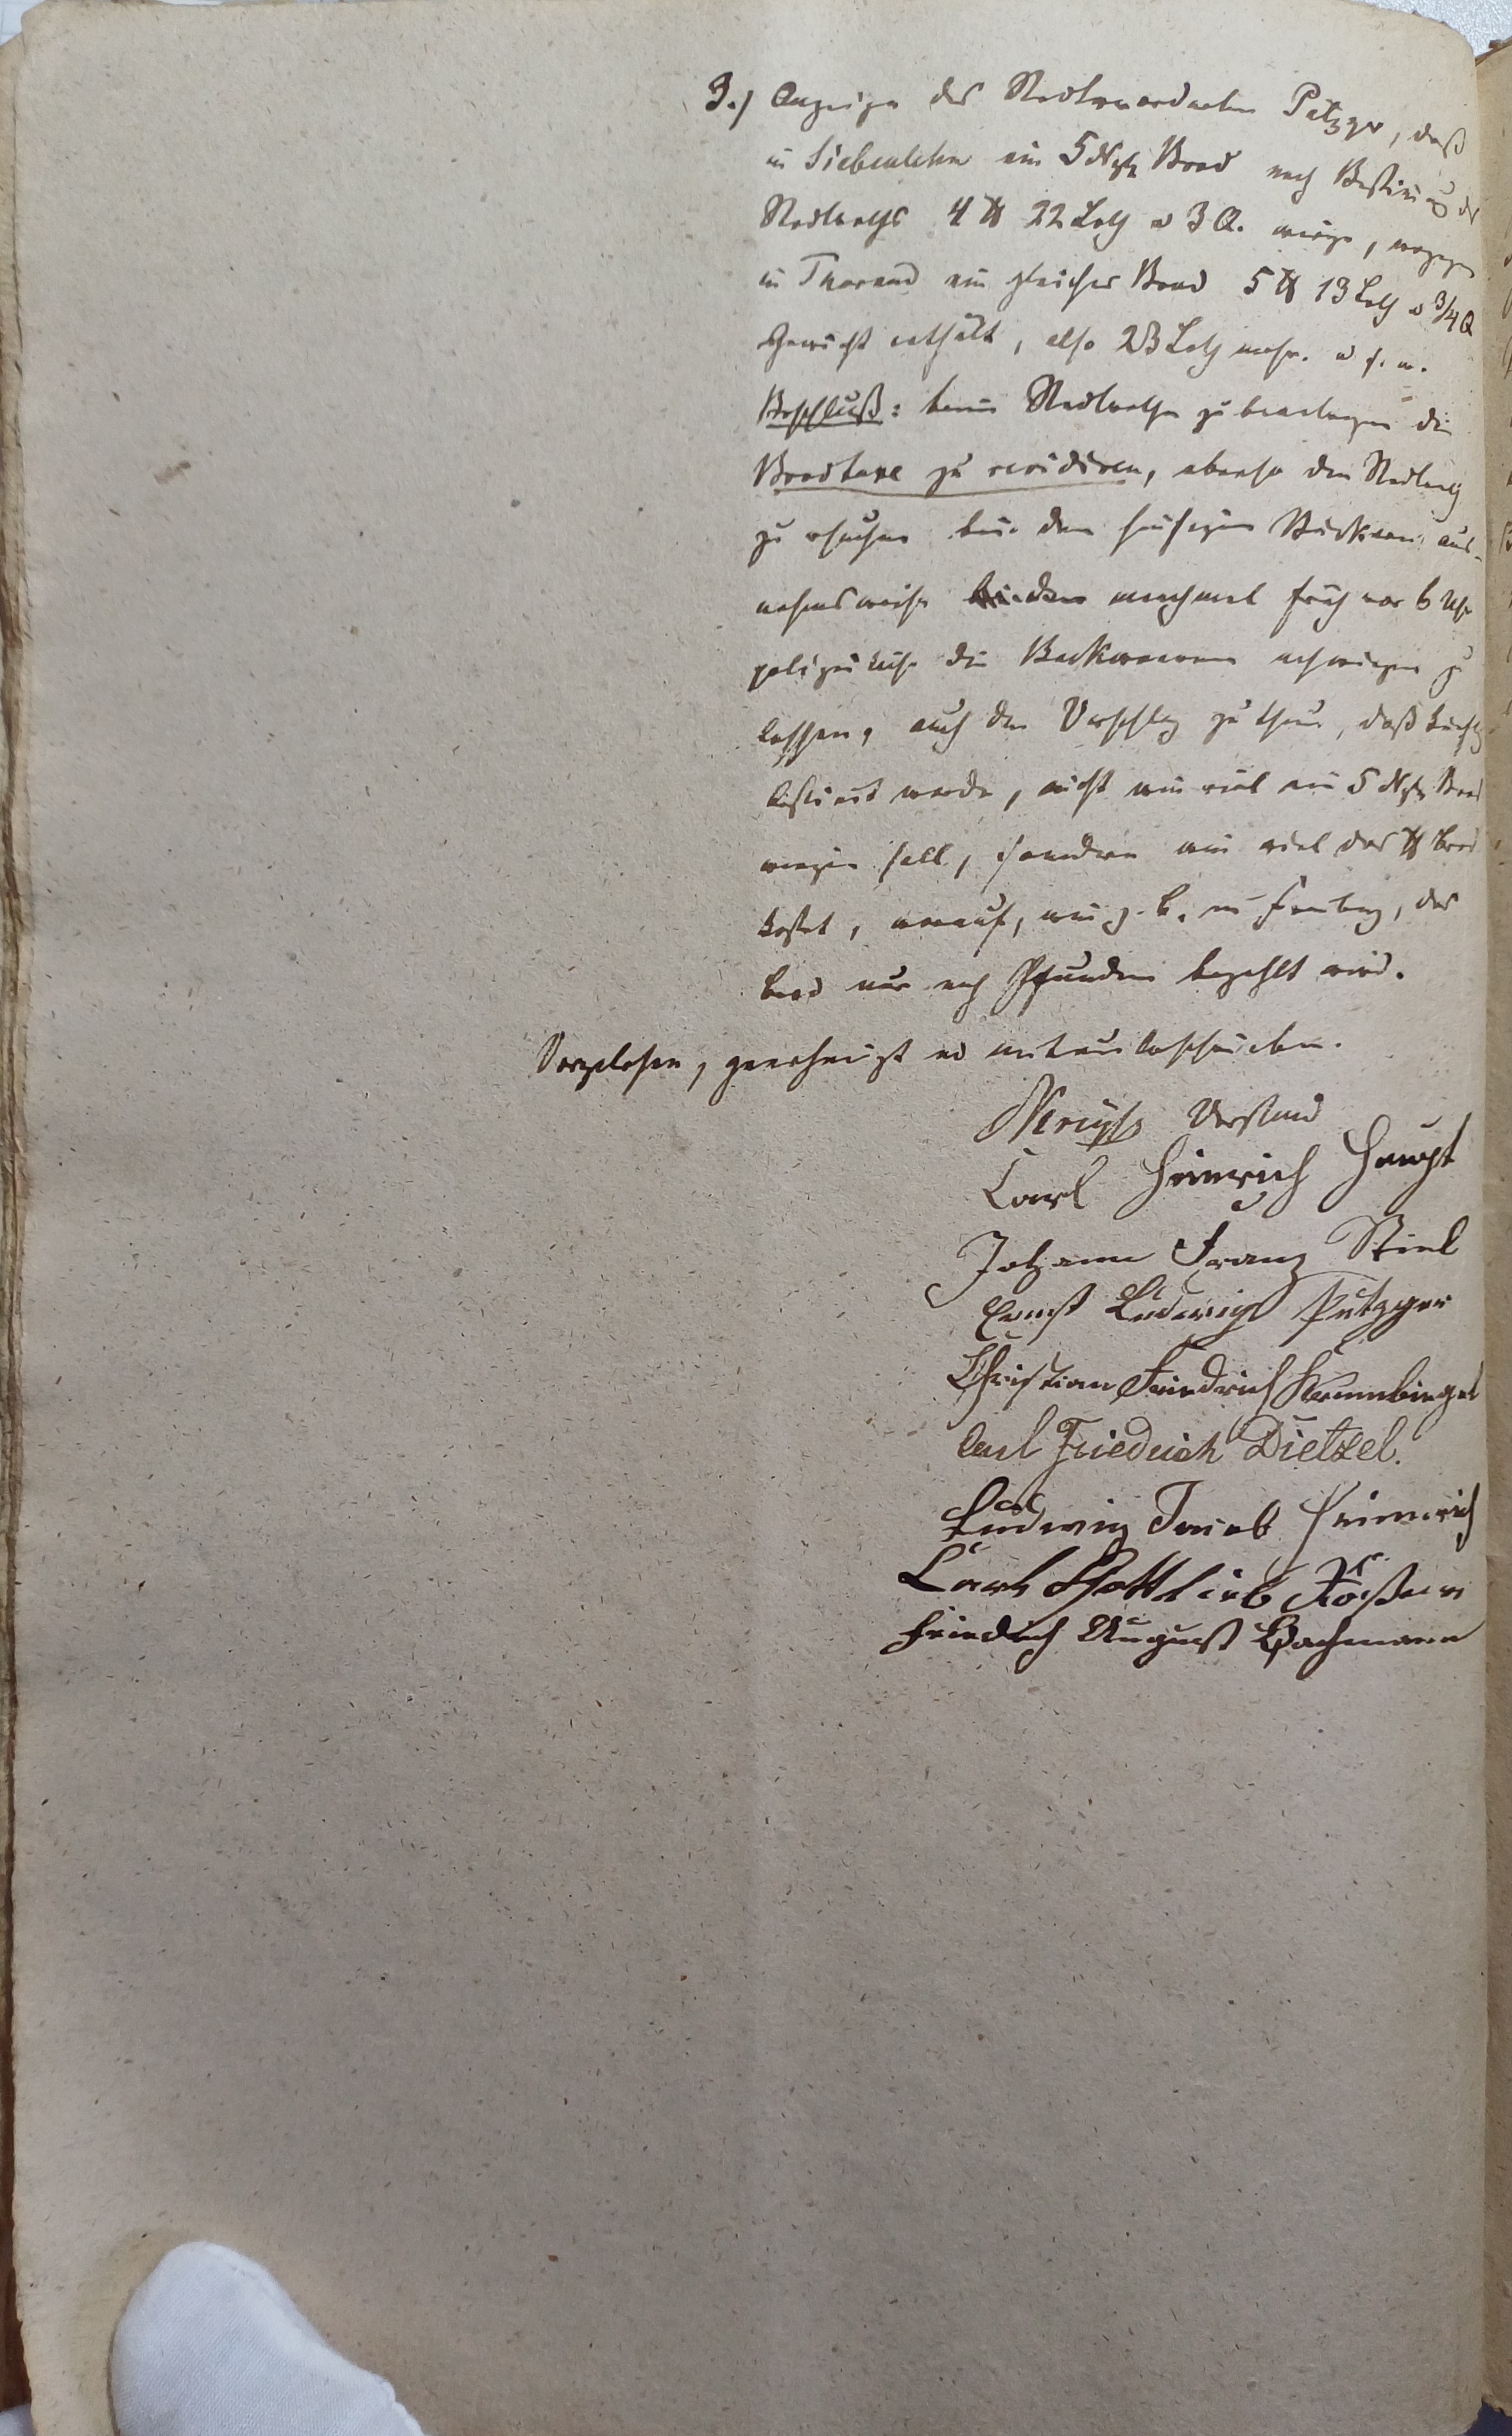 3.) Anzeige des Stadtverordneten Pützger, daß
in Siebenlehn ein 5 Ngr Brod nach Bestimung des
Stadtraths 4 ℔ 22 Loth u 3 Q. wiege, wogegen
in Tharand ein gleiches Brod 5 ℔ 13 Loth u 3/4 Q
Gewicht enthält, also 23 Loth mehr. u s. w.
Beschluß: beim Stadtrathe zu beantragen die
Brodtaxe zu revidiren, ebenso den Stadtrath
zu ersuchen bei den hiesigen Bäckern aus-
nahmsweise manchmal früh vor 6 Uhr
polizeilich die Backwaaren nachwiegen zu
lassen, auch den Vorschlag zu thun, daß künftig
bestimt werde, nicht wie viel ein 5 Ngr Brod
wiegen soll, sondern wie viel das ℔ Brod
kostet, worauf, wie z. B. in Freiberg, das
Brod nur nach Pfunden bezahlt wird.
Vorgelesen, genehmigt und mitunterschrieben.
Vorstand
Carl Heinrich Haupt
Johann Franz Stiel
Ernst Ludwig Pützger
Christian Friedrich Krumbiegel
Carl Friedrich Dietzel.
Ludwig Jacob Heimerich
Carl Gottlieb
Friedrich August Bachmann